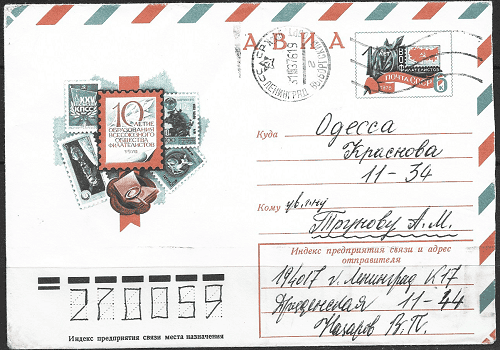 АВИА
ЛЕНИНГРАД
10 ЛЕТ
ВОФ
ФИЛАТЕЛИСТОВ
ПОЧТА СССР
1976
10-ЛЕТИЕ
ОБРАЗОВАНИЯ
ВСЕСОЮЗНОГО
ОБЩЕСТВА
ФИЛАТЕЛИСТОВ
Куда Одесса
Краснова
11-34
Кому ув. т-щу
Трунову А. М.
Индекс предприятия связи и адрес
отправителя
194017 г. Ленинград К17
Дрезденская 11-44
Назаров В. П.
270059
Индекс предприятия связи места назначения